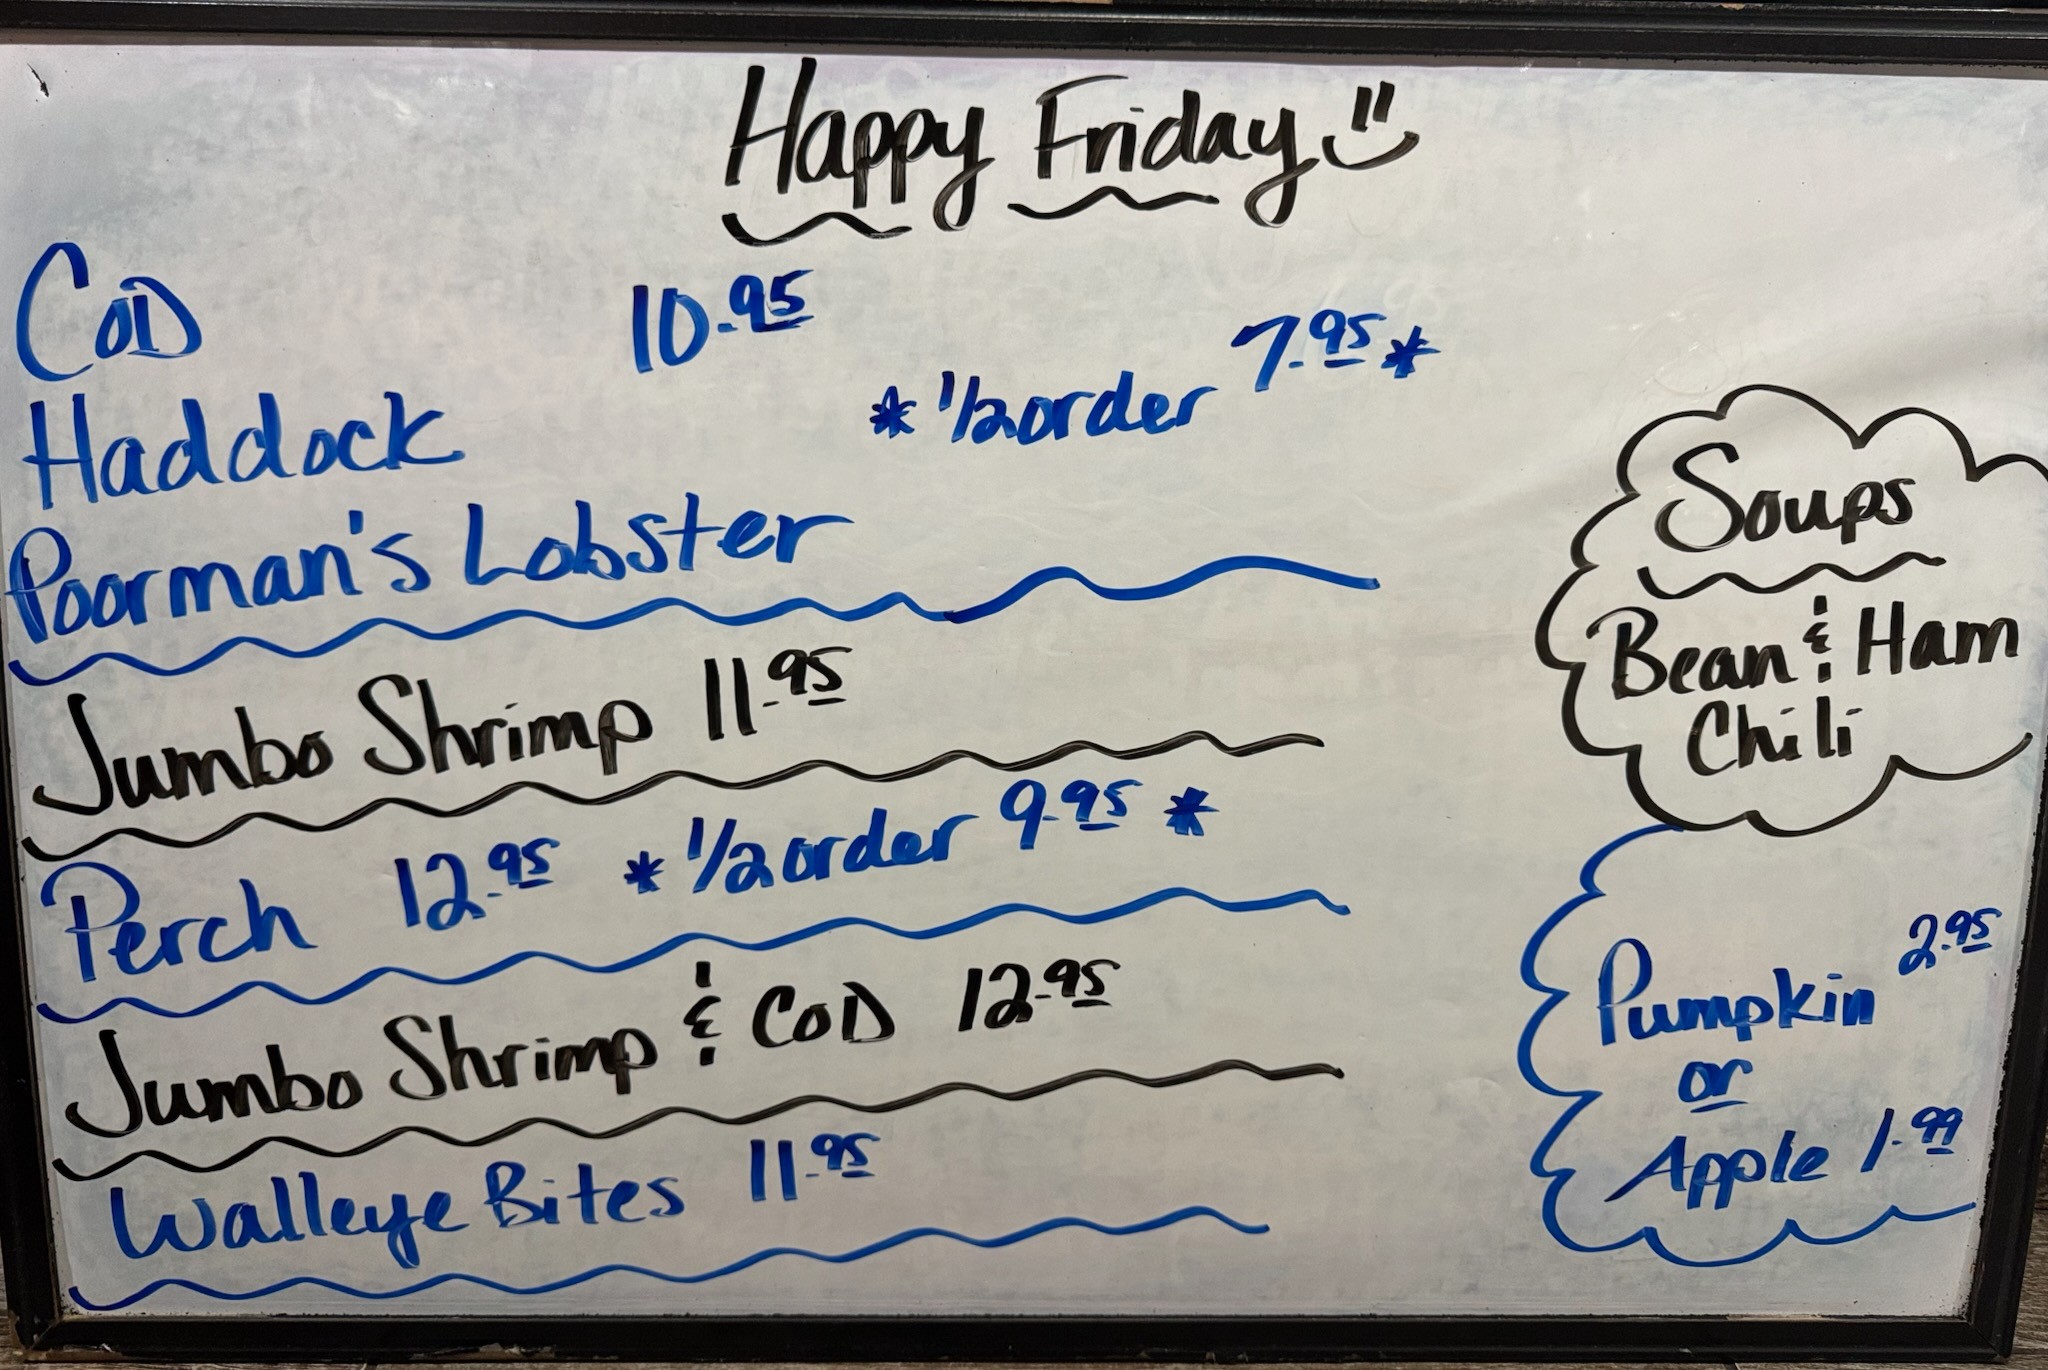 Happy Friday
Cod 10.95
Haddock *1/2 order 7.95*
Poorman's Lobster
Jumbo Shrimp 11.95
Perch 12.95 *1/2 order 9.95*
Jumbo Shrimp & Cod 12.95
Walleye Bites 11.95
Soups
Bean & Ham
Chili
Pumpkin 2.95
or
Apple 1.99